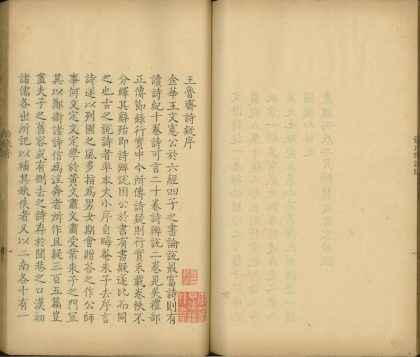 王魯齋詩疑序
金華王文憲公於六經四子之書論說最富詩則有
讀詩紀十卷詩可言二十卷詩辨說二卷見吳禮部
正傳節錄行實中今所傳詩疑則行實未載卷帙不
分繹其辭殆即詩辨說因公於書有書疑遂比而同
之也古之說詩者率本大小序自晦庵朱子去序言
詩遂以列國之風多指為男女期會贈答之作公師
事何文定文定學於黃文肅文肅受業朱子之門宜
其以鄭衛諸詩信為淫奔者所作且疑三百五篇豈
盡夫子之舊容或有刪去之詩存於閭巷之口漢初
諸儒各出所記以補其缺佚者又以二南各十有一